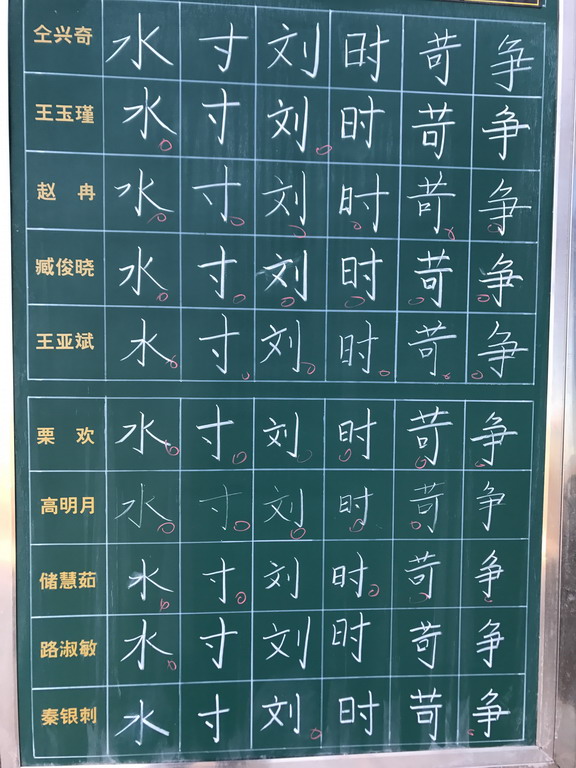 仝兴奇 水 寸 刘 时 苛 争
王玉瑾 水 寸 刘 时 苛 争
赵 冉 水 寸 刘 时 苛 争
臧俊晓 水 寸 刘 时 苛 争
王亚斌 水 寸 刘 时 苛 争
栗 欢 水 寸 刘 时 苛 争
高明月 水 寸 刘 时 苛 争
储慧茹 水 寸 刘 时 苛 争
路淑敏 水 寸 刘 时 苛 争
秦银刺 水 寸 刘 时 苛 争